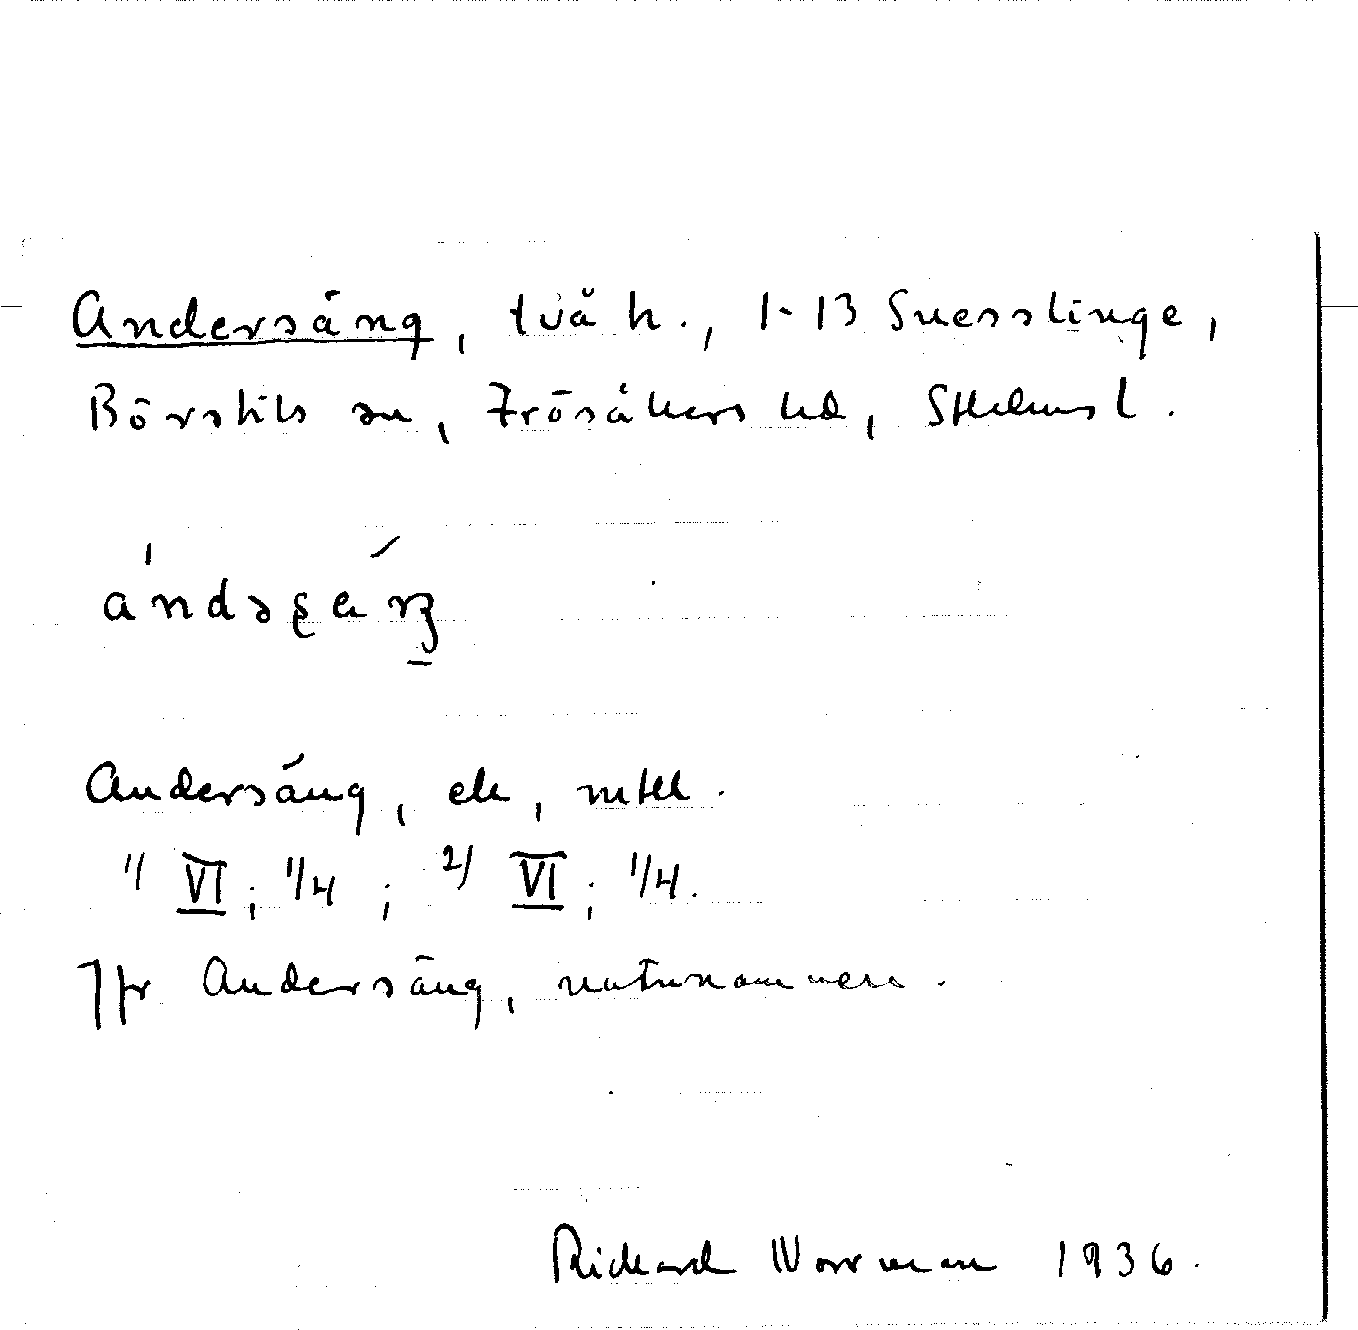 Andersäng, två h., 1-13 Snesslinge,
Börstils sn, Frösåkers hd, Sthlms l.
Andersäng, ek,
1) VI; 1/4; 2) VI; 1/4.
Jfr Andersäng, naturnamnen.
Rickard Norrman 1936.